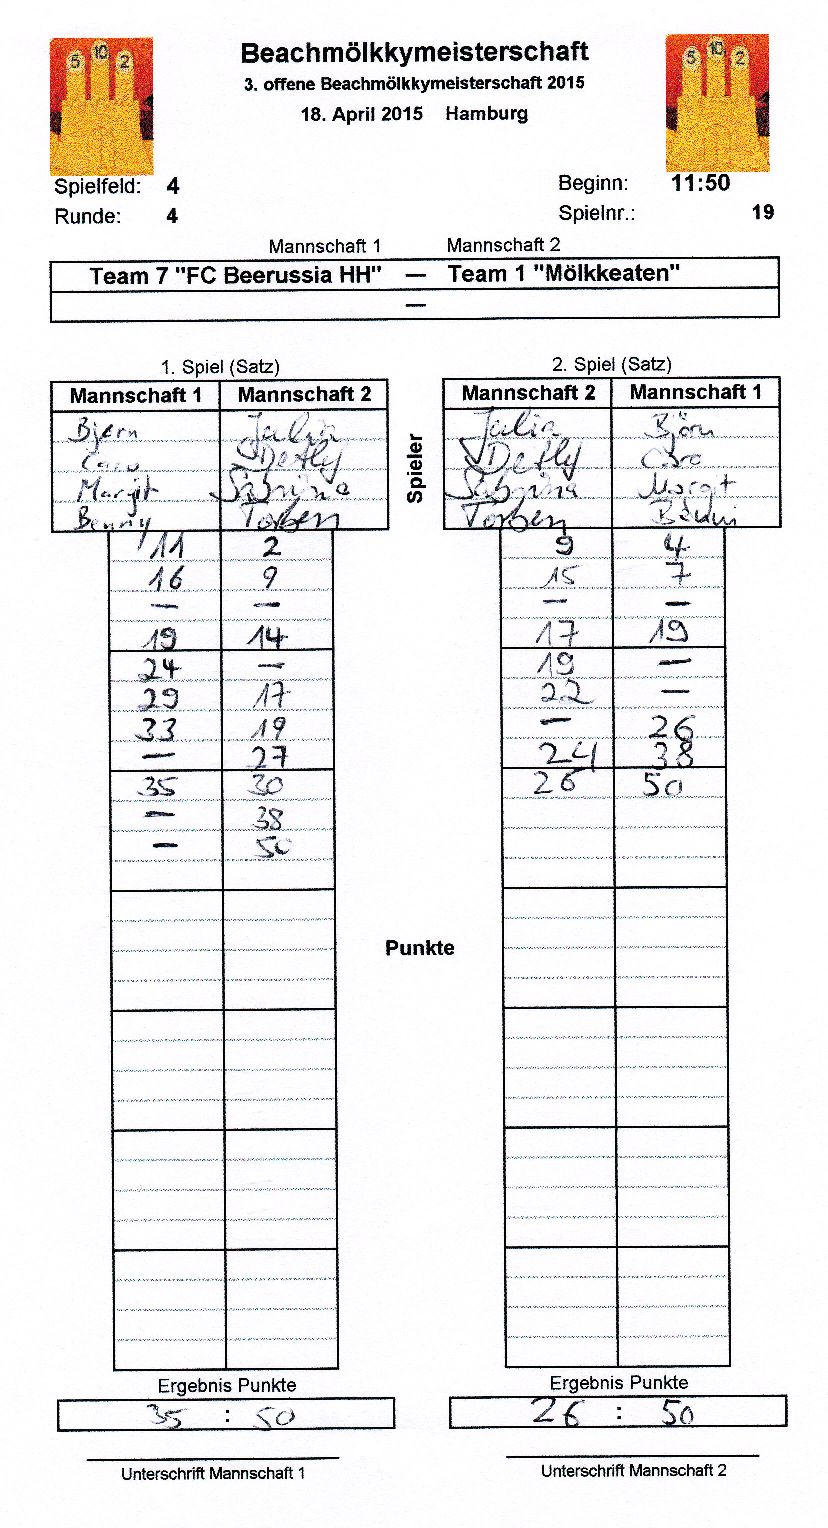 5 10 2
5 10 2
Beachmölkkymeisterschaft
3. offene Beachmölkkymeisterschaft 2015
18. April 2015 Hamburg
Spielfeld: 4 Beginn: 11:50
Runde: 4 Spielnr.: 19
Mannschaft 1 Mannschaft 2
Team 7 "FC Beerussia HH" — Team 1 "Mölkkeaten"
—
1. Spiel (Satz)
Mannschaft 1 Mannschaft 2
Bjern Julia
Caro Detly
Margit Sabrina
Benny Torben
11 2
16 9
— —
19 14
24 —
29 17
33 19
— 27
35 30
— 38
— 50
Spieler
Punkte
2. Spiel (Satz)
Mannschaft 2 Mannschaft 1
Julia Björn
Detly Caro
Sabrina Margit
Torben Benni
9 4
15 7
— —
17 19
19 —
22 —
— 26
24 38
26 50
Ergebnis Punkte
35 : 50
Unterschrift Mannschaft 1
Ergebnis Punkte
26 : 50
Unterschrift Mannschaft 2